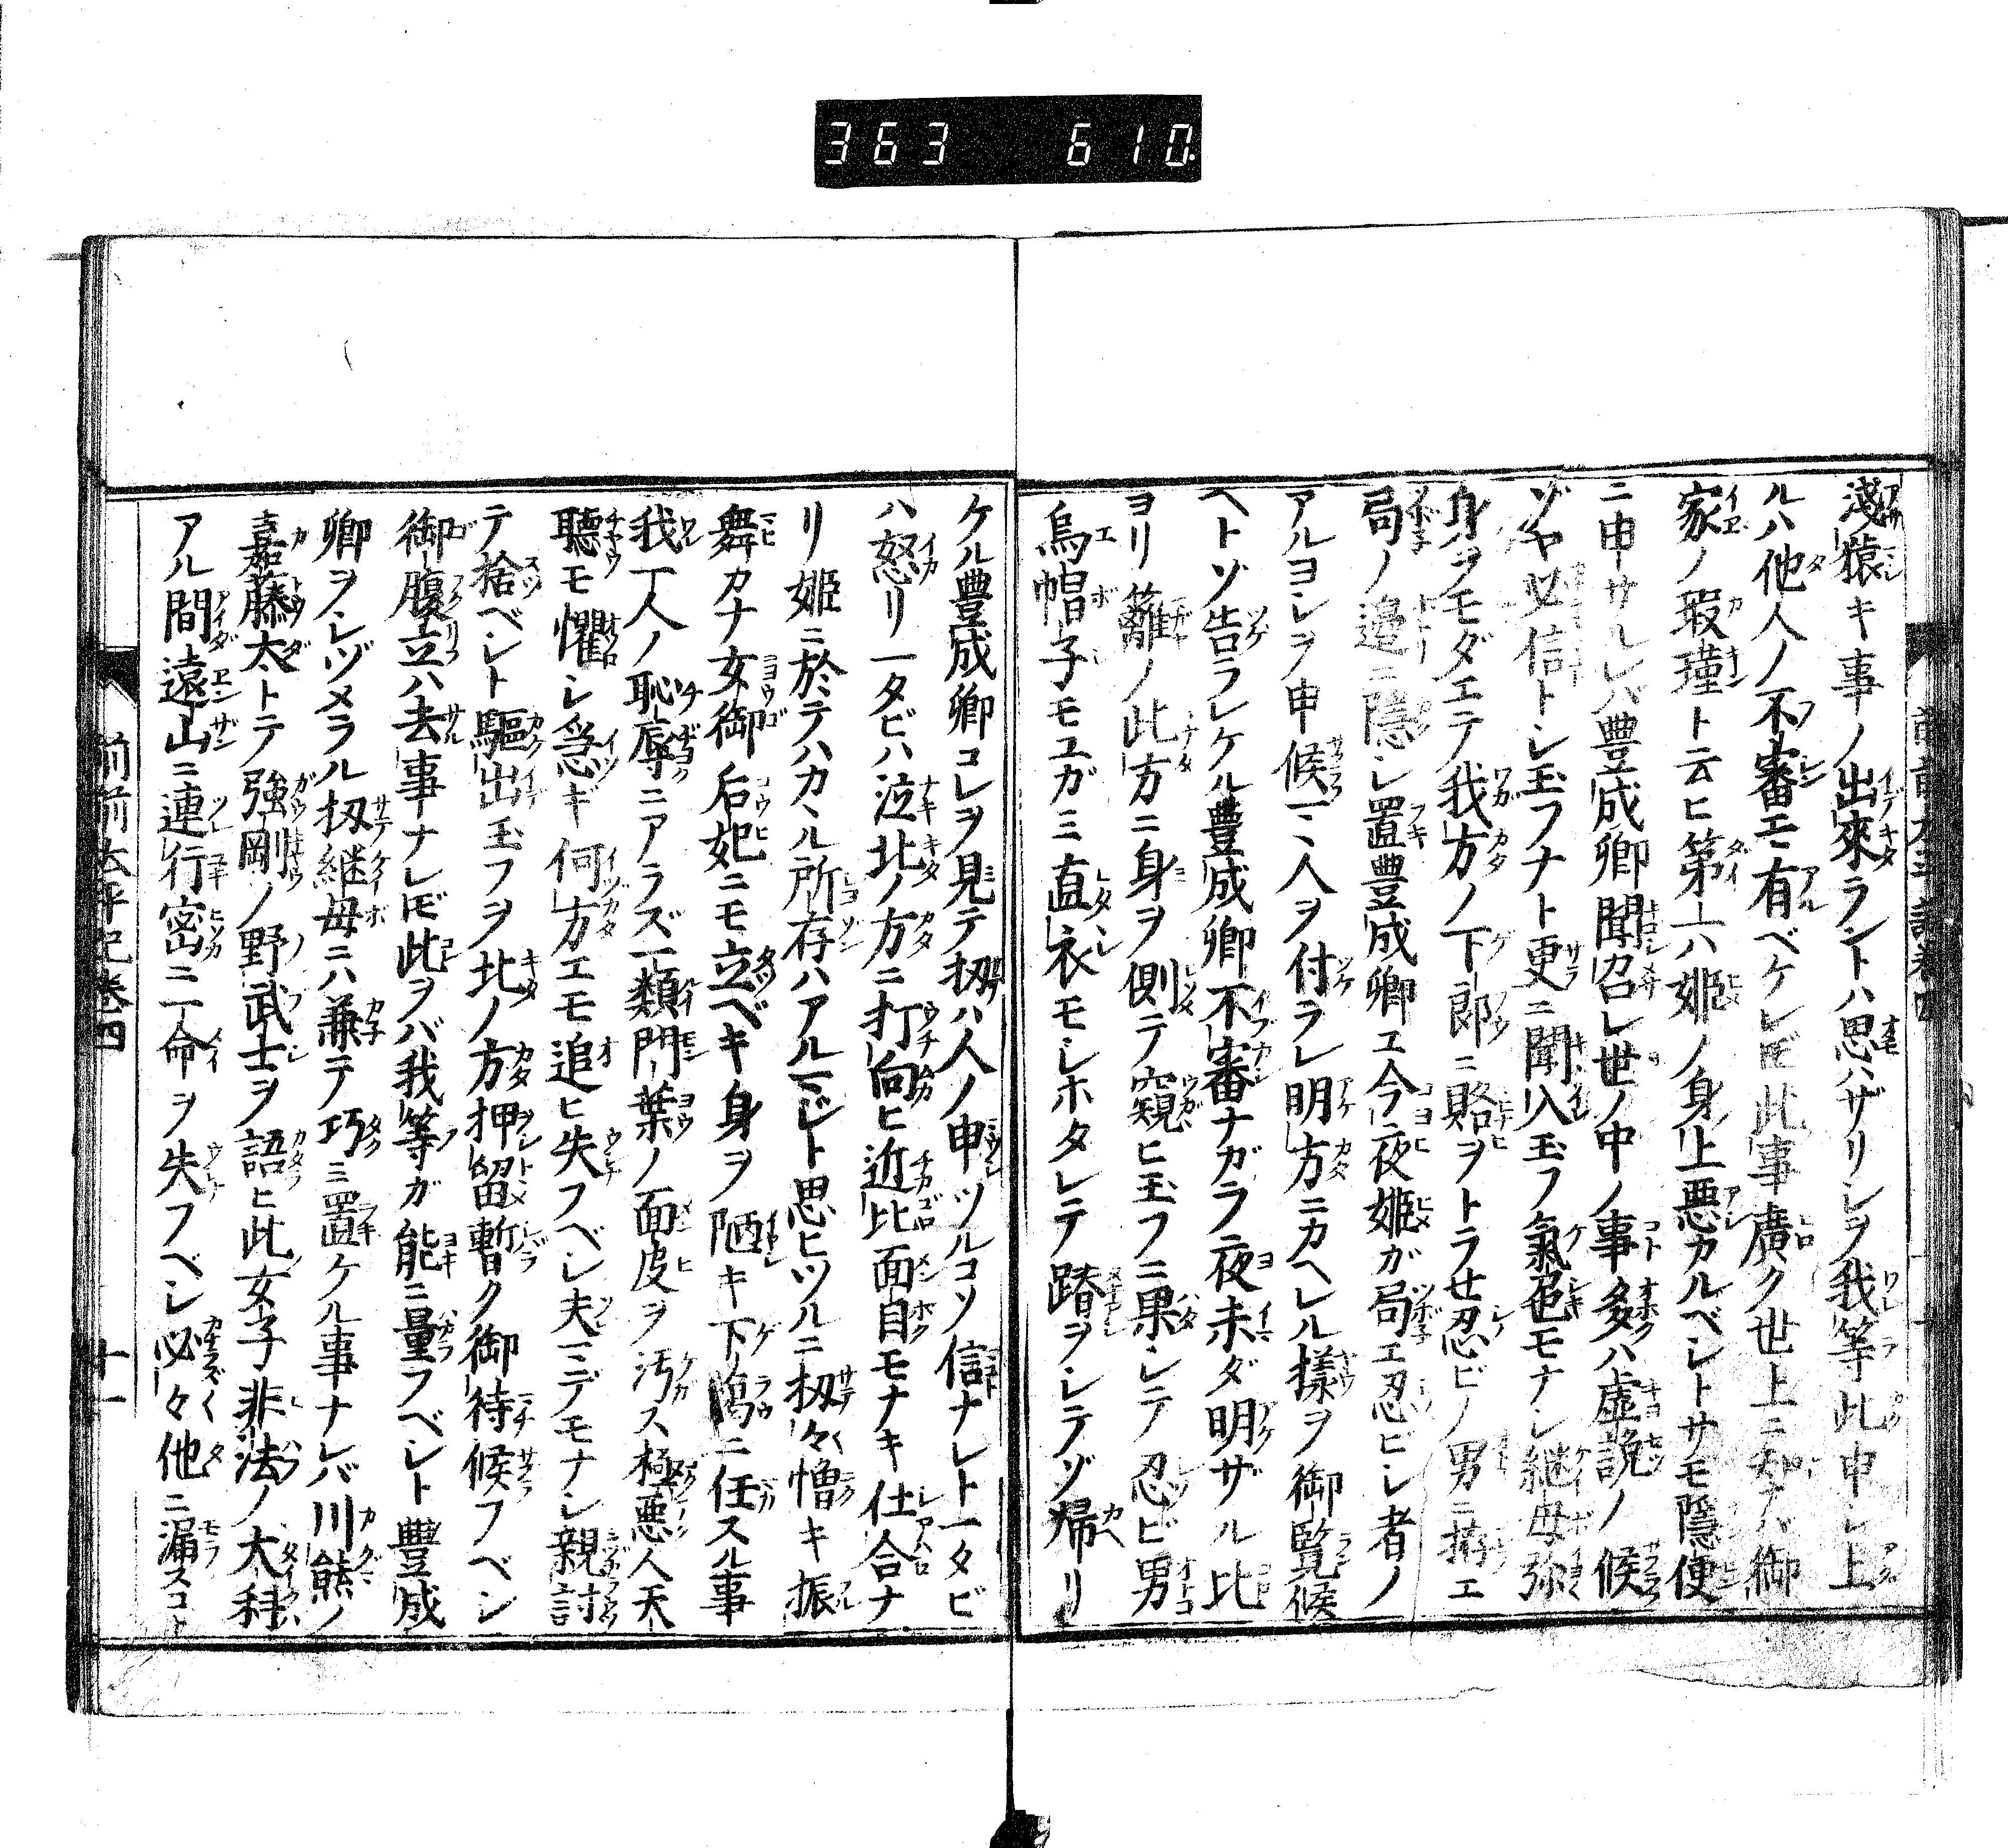 363 610.
淺猿キ事ノ出來ラントハ思ハザリシヲ我等此申シ上
ルハ他人ノ不審エ有ベケレ𪜈此事廣ク世上ニ知ハ御
家ノ瑕瑾ト云ヒ第一ハ姫ノ身上悪カルベシトサモ隱便
ニ申サルレバ豊成卿聞召シ世ノ中ノ事多クハ虚説ノ候
ゾヤ必信トシ玉フナト更ニ聞入玉フ氣色モナシ継母弥
身ヲモダエテ我方ノ下郎ニ賂ヲトラセ忍ビノ男ニ拵エ
局ノ邉ニ隱シ置豊成卿エ今夜姫ガ局エ忍ビシ者ノ
アルヨシヲ申候一ヽ人ヲ付ラレ明方ニカヘレル樣ヲ御覧候
ヘトゾ告ラレケル豊成卿不審ナガラ夜未ダ明ザル比
ヨリ籬ノ此方ニ身ヲ側テ窺ヒ玉フニ果シテ忍ビ男
烏帽子モユガミ直衣モシホタレテ蹐ヲシテゾ帰リ
ケル豊成卿コレヲ見テ扨ハ人ノ申ツルコソ信ナレト一タビ
ハ怒リ一タビハ泣北ノ方ニ打向ヒ近比面目モナキ仕合ナ
リ姫ニ於テハカヽル所存ハアルマジト思ヒツルニ扨々憎キ振
舞カナ女御后妃ニモ立ベキ身ヲ陋キ下﨟ニ任スル事
我一人ノ恥辱ニアラズ一類門葉ノ面皮ヲ汚ス極悪人天
聴モ懼シ急ギ何方エモ追ヒ失フベシ夫マデモナシ親討
テ捨ベシト驅出玉フヲ北ノ方押留暫ク御待候フベシ
御腹立ハ去事ナレ𪜈此ヲバ我等ガ能ニ量フベシト豊成
卿ヲシヅメラル扨継母ニハ兼テ巧ミ置ケル事ナレバ川熊ノ
嘉藤太トテ強剛ノ野武士ヲ語ヒ此女子非法ノ大科
アル間遠山ニ連行密ニ一命ヲ失フベシ必々他ニ漏スコト
前前太平記巻四
十一